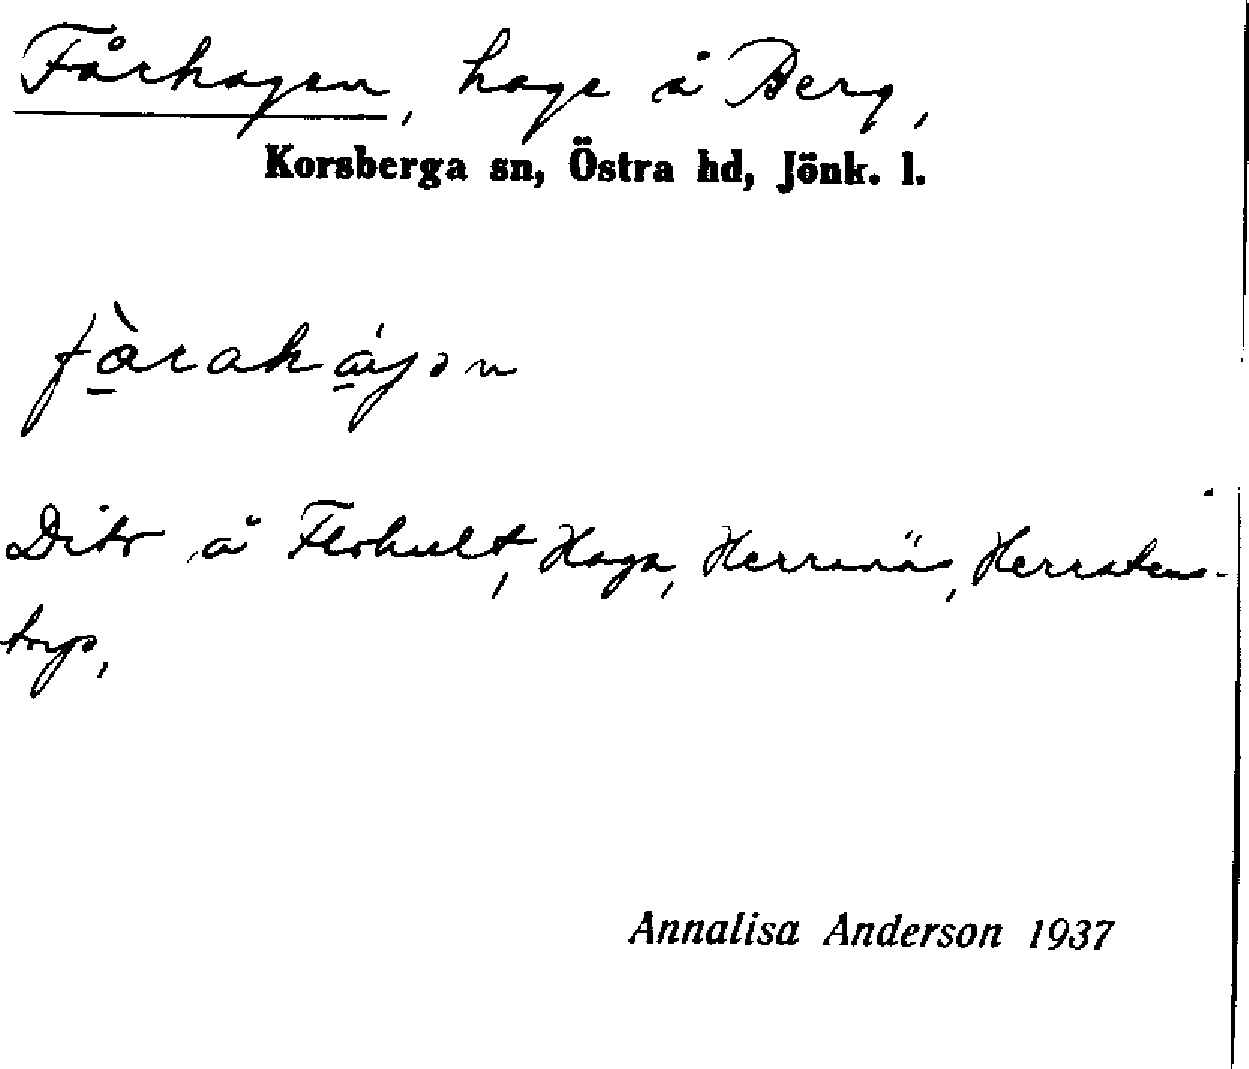 Fårhagen, hage å Berg,
Korsberga sn, Östra hd, Jönk. l.
fàrahájən
Dito å Flohult, Haga, Herrenäs, Herrstens-
torp,
Annalisa Anderson 1937